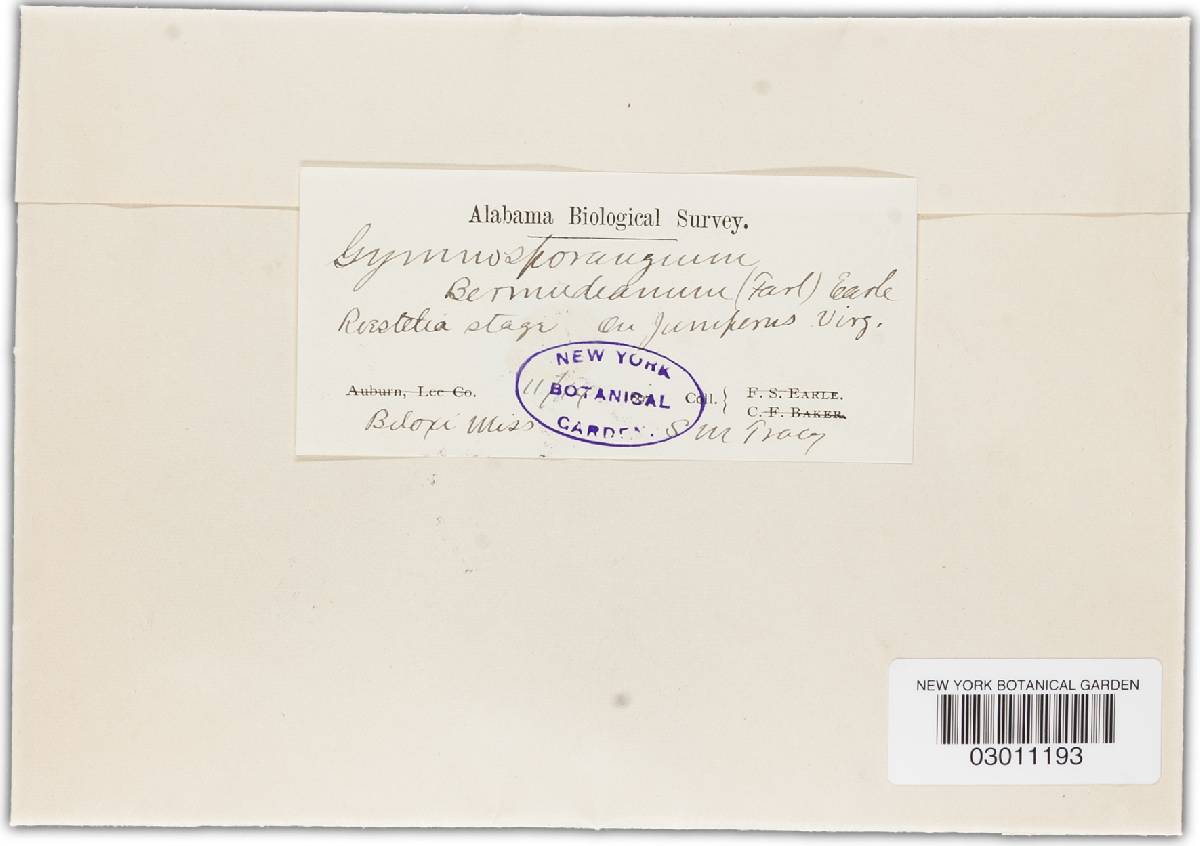 Alabama Biological Survey.
Gymnosporangium
Bermudianum (Farl) Earle
Roestelia stage On Juniperus Virg.
NEW YORK
BOTANICAL
GARDEN.
Auburn, Lee Co.
Coll. { F. S. EARLE.
C. F. BAKER.
Biloxi Miss
S M Tracy
NEW YORK BOTANICAL GARDEN
03011193